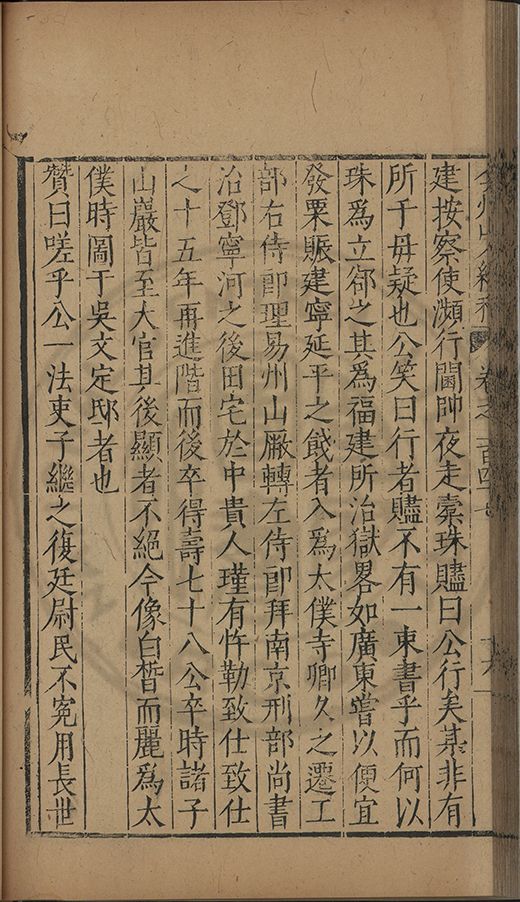 卷之一百四
建按察使瀕行閫帥夜走橐珠贐曰公行矣某非有
所干毋疑也公笑曰行者贐不有一束書乎而何以
珠爲立郤之其爲福建所治獄畧如廣東嘗以便宜
發粟賑建寧延平之餓者入爲太僕寺卿久之遷工
部右侍郎理易州山厰轉左侍郎拜南京刑部尚書
治鄧寧河之後田宅於中貴人瑾有忤勒致仕致仕
之十五年再進階而後卒得壽七十八公卒時諸子
山巖皆至大官其後顯者不絕今像白皙而麗爲太
僕時圖于吳文定邸者也
贊曰嗟乎公一法吏子繼之復廷尉民不冤用長世